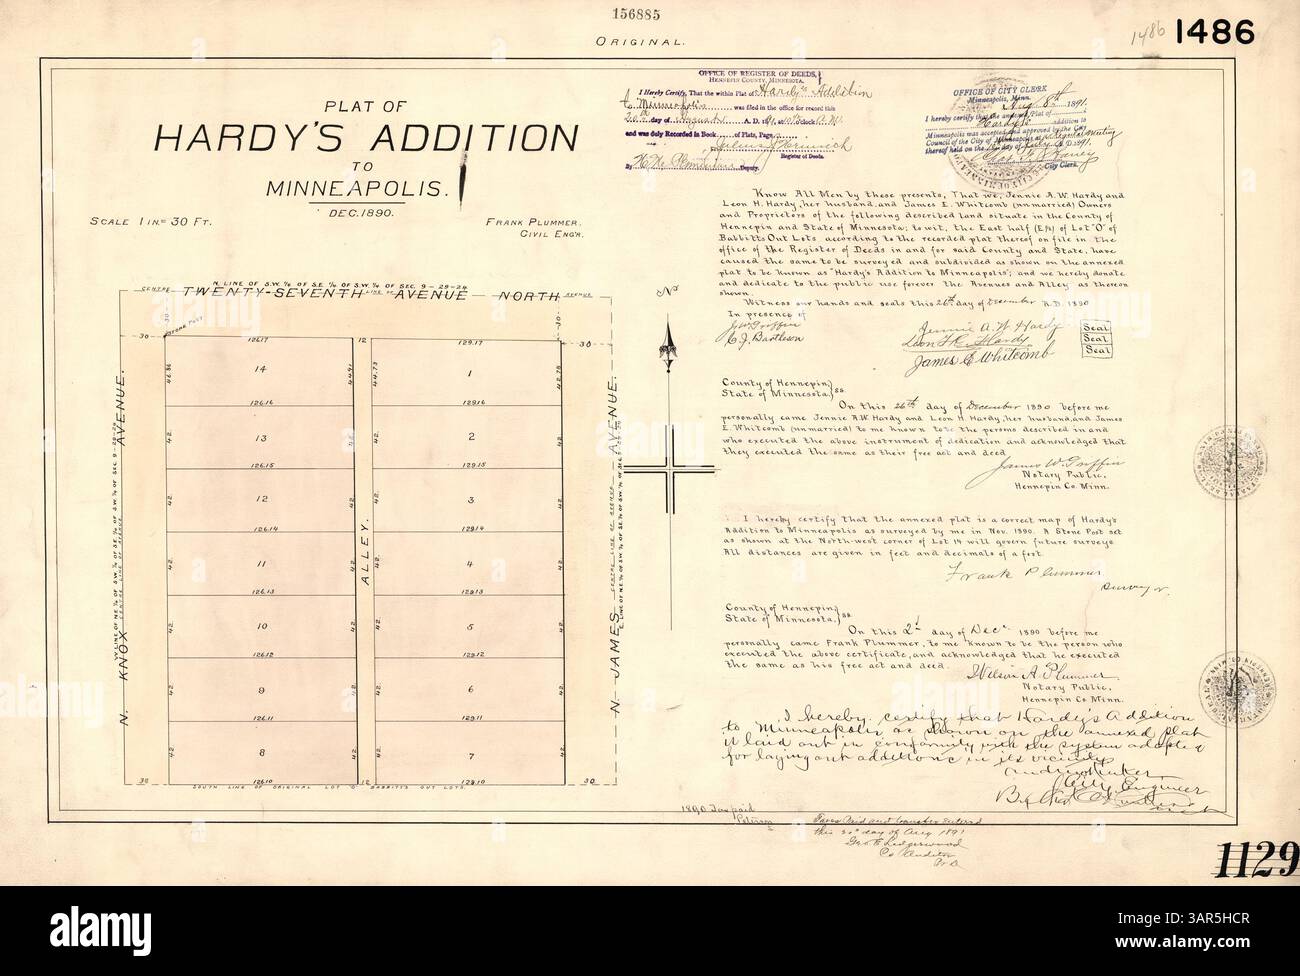 156885
ORIGINAL.
1486 1486
PLAT OF
HARDY'S ADDITION
TO
MINNEAPOLIS.
DEC. 1890.
SCALE 1 IN.= 30 FT.
FRANK PLUMMER.
CIVIL ENG'R.
OFFICE OF REGISTER OF DEEDS,
HENNEPIN COUNTY, MINNESOTA.
I Hereby Certify, That the within Plat of Hardy's Addition
to Minneapolis was filed in the office for record this
20th day of August A. D. 1891, at 10 o'clock A. M.
and was duly Recorded in Book of Plats, Page
Register of Deeds.
By Deputy.
OFFICE OF CITY CLERK
Minneapolis, Minn. Aug 8th 1891.
I hereby certify that the annexed Plat of
Hardy's addition to
Minneapolis was accepted and approved by the City
Council of the City of Minneapolis at a regular meeting
thereof held on the day of July A. D. 1891.
City Clerk.
Know All Men by these presents, That we, Jennie A. W. Hardy and
Leon H. Hardy, her husband, and James E. Whitcomb (unmarried) Owners
and Proprietors of the following described land situate in the County of
Hennepin and State of Minnesota; to wit, the East half (E.½) of Lot "O" of
Babbitts Out Lots according to the recorded plat thereof on file in the
office of the Register of Deeds in and for said County and State, have
caused the same to be surveyed and subdivided as shown on the annexed
plat to be known as "Hardy's Addition to Minneapolis"; and we hereby donate
and dedicate to the public use forever the Avenues and Alley as thereon
shown.
Witness our hands and seals this 26th day of December A.D. 1890
In presence of
J. W. Griffin
C. J. Bartleson
Jennie A. W. Hardy
Leon H. Hardy
James E Whitcomb
Seal
Seal
Seal
County of Hennepin,
State of Minnesota, } ss.
On this 26th day of December 1890 before me
personally came Jennie A.W. Hardy and Leon H. Hardy, her husband, and James
E. Whitcomb (unmarried) to me known to be the persons described in and
who executed the above instrument of dedication and acknowledged that
they executed the same as their free act and deed
James W. Griffin
Notary Public,
Hennepin Co. Minn.
I hereby certify that the annexed plat is a correct map of Hardy's
Addition to Minneapolis as surveyed by me in Nov. 1890. A Stone Post set
as shown at the North-west corner of Lot 14 will govern future surveys
All distances are given in feet and decimals of a foot.
Frank Plummer
Surveyor.
County of Hennepin,
State of Minnesota, } ss.
On this 2d day of Dec. 1890 before me
personally came Frank Plummer, to me known to be the person who
executed the above certificate, and acknowledged that he executed
the same as his free act and deed.
Wilson A. Plummer
Notary Public,
Hennepin Co. Minn.
I hereby certify that Hardy's Addition
to Minneapolis as shown on the annexed plat
is laid out in conformity with the system adopted
for laying out additions in its vicinity
City Engineer
1890 Tax paid
Peterson
Taxes Paid and transfer entered
this 20th day of Aug 1891
Geo. E. Ledgerwood
Co Auditor
N. LINE OF S.W. ¼ OF S.E. ¼ OF S.W. ¼ OF SEC. 9-29-24
CENTRE LINE OF AVENUE
TWENTY-SEVENTH AVENUE NORTH
STONE POST
30 30
30 30
126.17 12 129.17
46.86 14 44.91 44.73 1 42.78
126.16 129.16
42. 13 42. 42. 2 42.
126.15 129.15
42. 12 42. 42. 3 42.
126.14 129.14
42. 11 42. 42. 4 42.
126.13 129.13
42. 10 42. 42. 5 42.
126.12 129.12
42. 9 42. 42. 6 42.
126.11 129.11
42. 8 42. 42. 7 42.
126.10 12 129.10
30 30
ALLEY.
N. KNOX AVENUE.
N. JAMES AVENUE
SOUTH LINE OF ORIGINAL LOT "O" BABBITTS OUT LOTS
1129
alamy
Image ID: 3AR5HCR
www.alamy.com